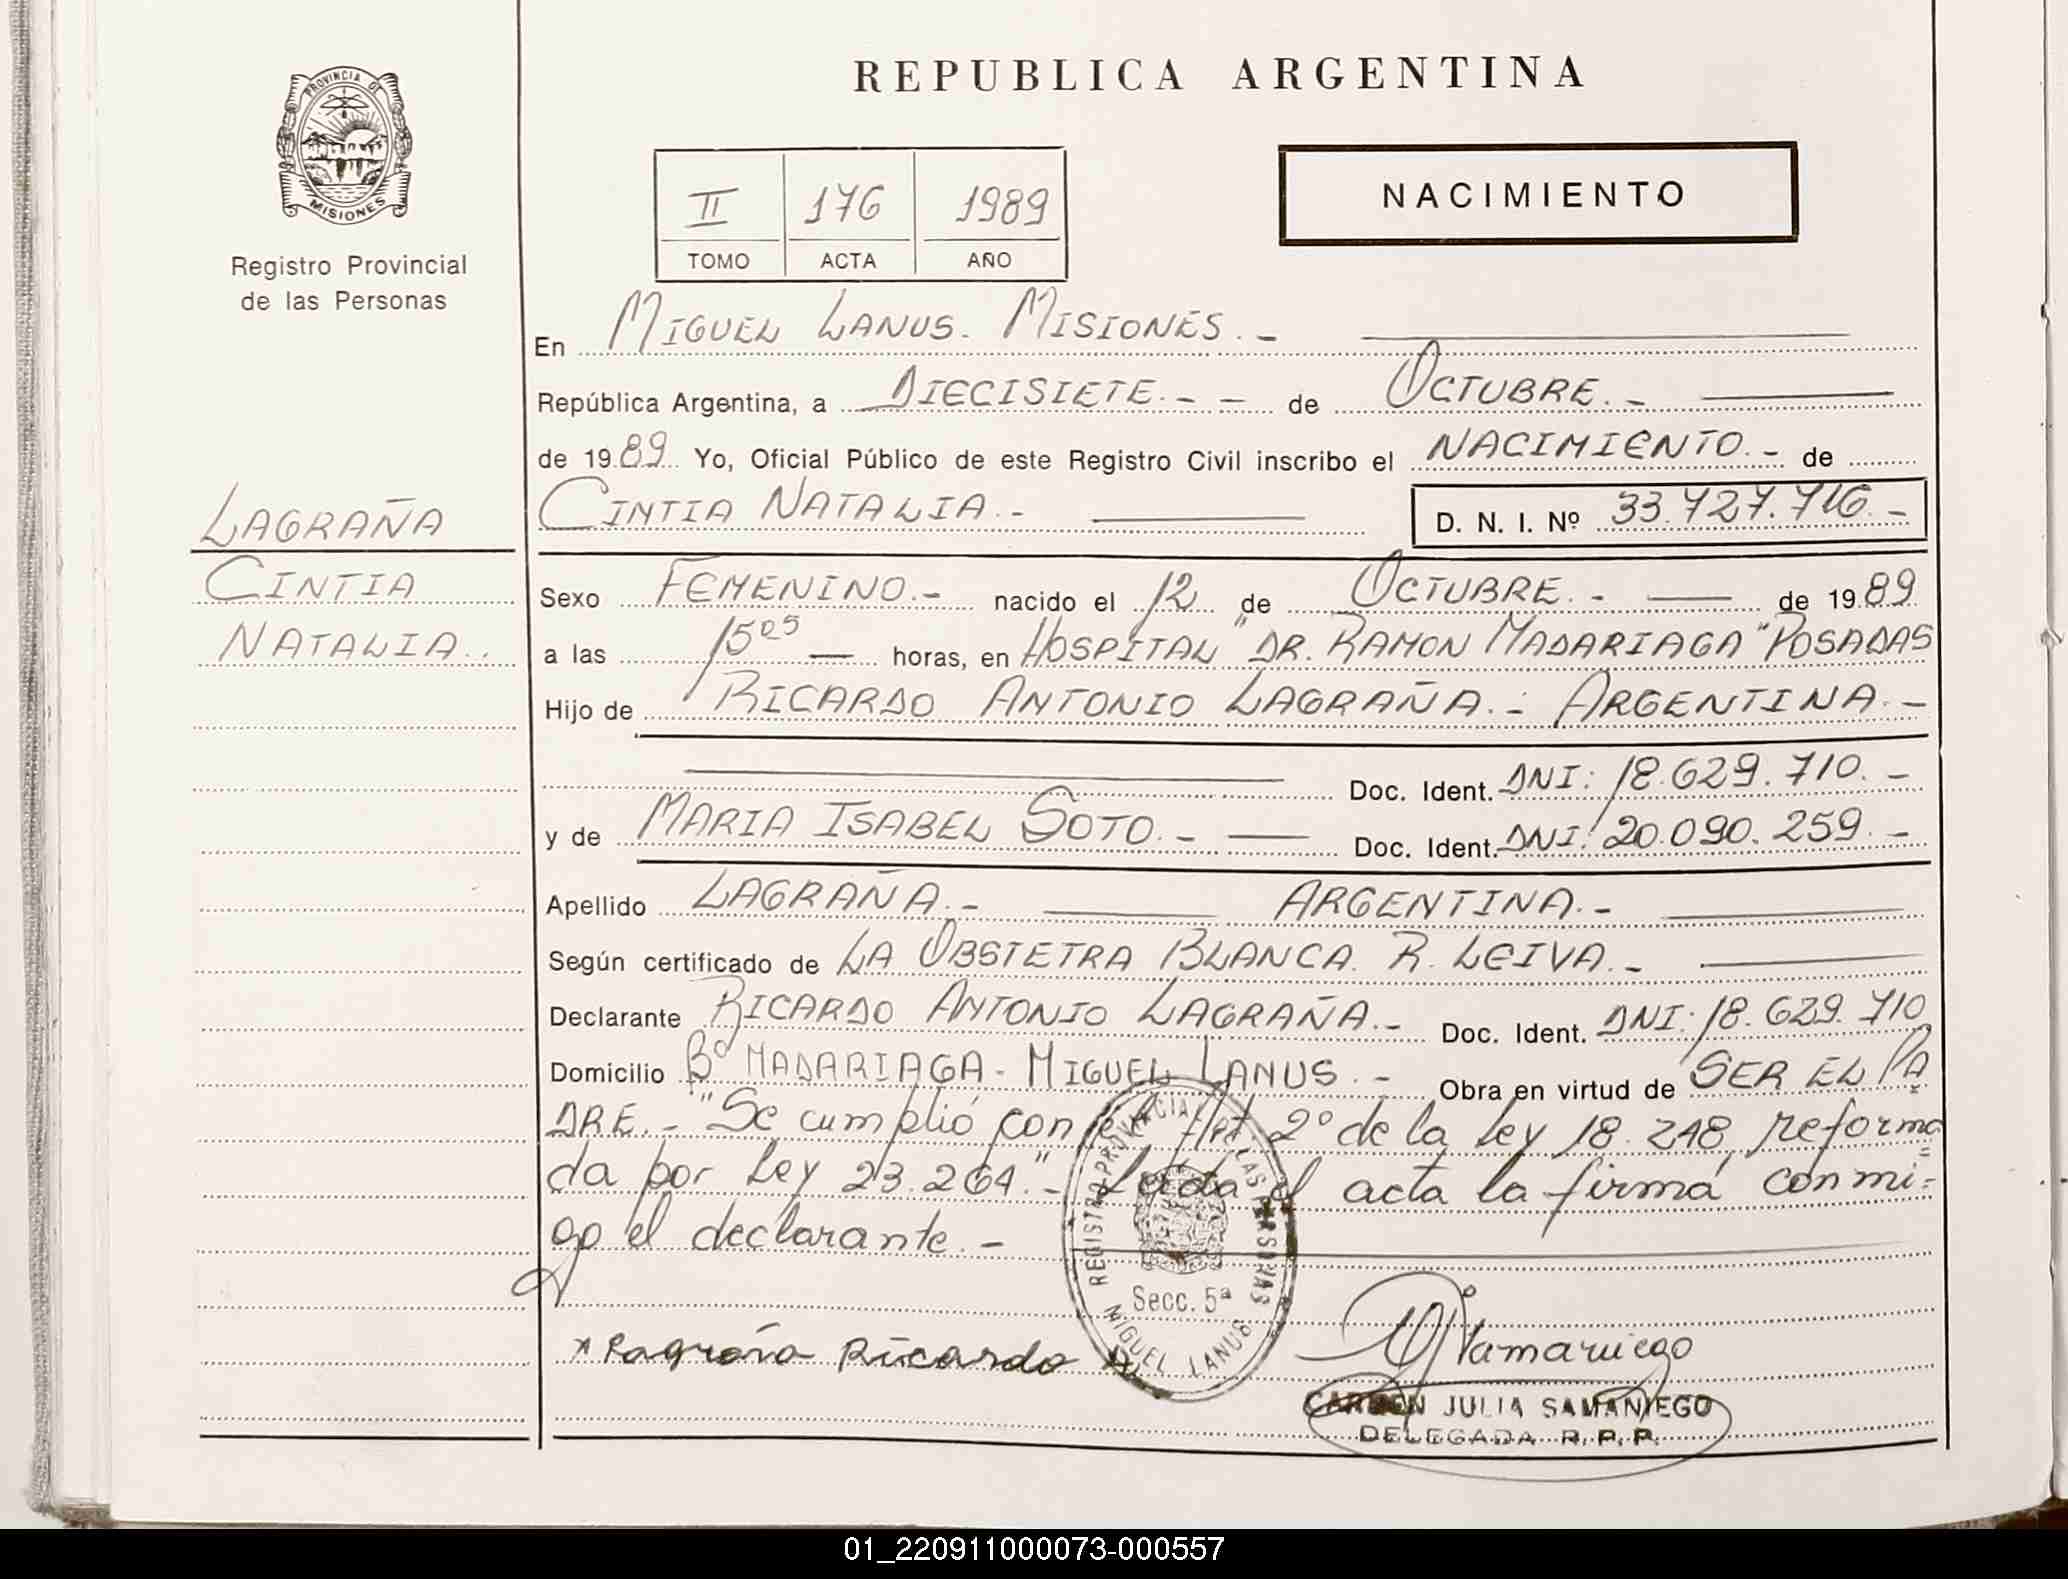 REPUBLICA ARGENTINA
PROVINCIA DE
MISIONES
Registro Provincial
de las Personas
II 176 1989
TOMO ACTA AÑO
NACIMIENTO
En MIGUEL LANUS. MISIONES.-
República Argentina, a DIECISIETE.- - de OCTUBRE.-
de 1989 Yo, Oficial Público de este Registro Civil inscribo el NACIMIENTO.- de
CINTIA NATALIA.- D. N. I. Nº 33.727.716.-
LAGRAÑA
CINTIA
NATALIA..
Sexo FEMENINO.- nacido el 12 de OCTUBRE.- de 1989
a las 15 05 horas, en HOSPITAL "DR. RAMON MADARIAGA" POSADAS
Hijo de RICARDO ANTONIO LAGRAÑA.- ARGENTINA.-
Doc. Ident. DNI: 18.629.710.-
y de MARIA ISABEL SOTO.- Doc. Ident. DNI: 20.090.259.-
Apellido LAGRAÑA.- ARGENTINA.-
Según certificado de LA OBSTETRA BLANCA. R. LEIVA.-
Declarante RICARDO ANTONIO LAGRAÑA.- Doc. Ident. DNI: 18.629.710
Domicilio Bº MADARIAGA - MIGUEL LANUS.- Obra en virtud de SER EL PA
DRE.- "Se cumplió con el Art. 2º de la Ley 18.248, reforma
da por Ley 23.264".- Leida el acta la firmá conmi-
go el declarante.-
REGISTRO PROVINCIAL DE LAS PERSONAS
Secc. 5ª
MIGUEL LANUS
x Lagraña Ricardo A.
CARMEN JULIA SAMANIEGO
DELEGADA R.P.P.
01_220911000073-000557